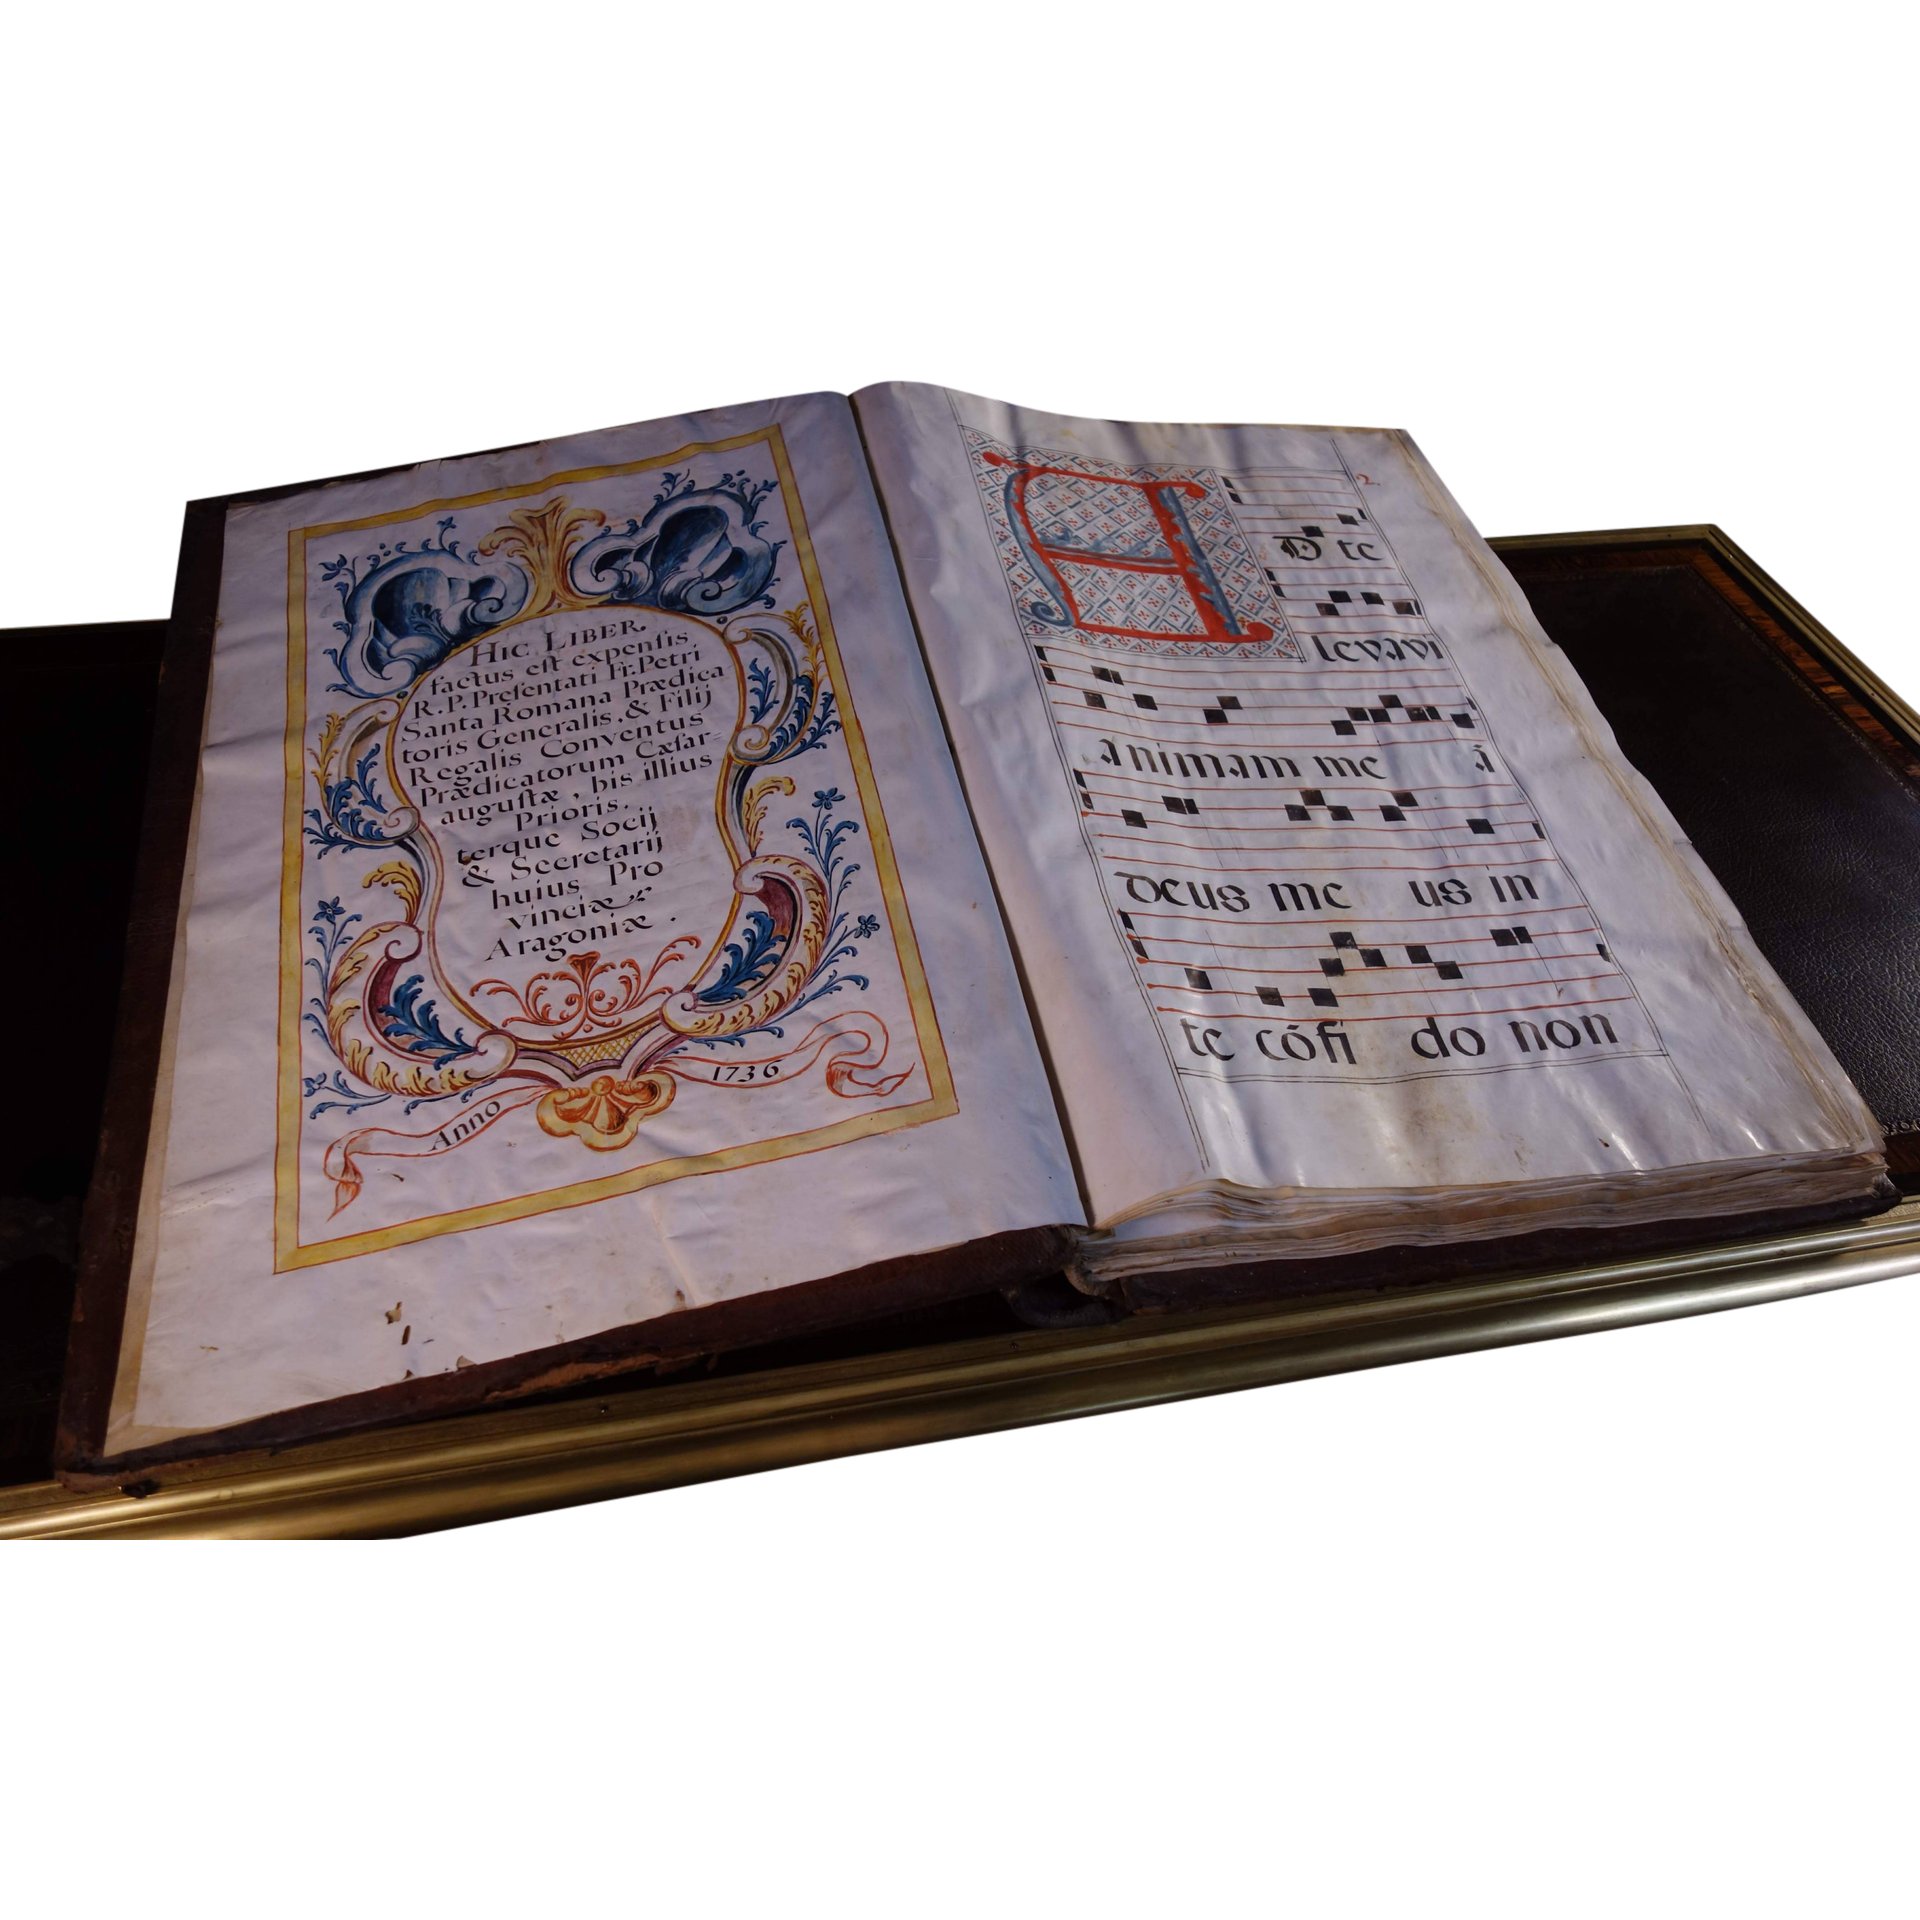 HIC LIBER.
factus eſt expenſis
R. P. Preſentati Fr. Petri
Santa Romana Prædica
toris Generalis, & Filij
Regalis Conventus
Prædicatorum Cæſar=
auguſtæ, bis illius
Prioris.
terque Socij
& Secretarij
huius Pro
vinciæ
Aragoniæ.
Anno 1736
2.
AD te
levavi
animam me ã
deus me us in
te cófi do non